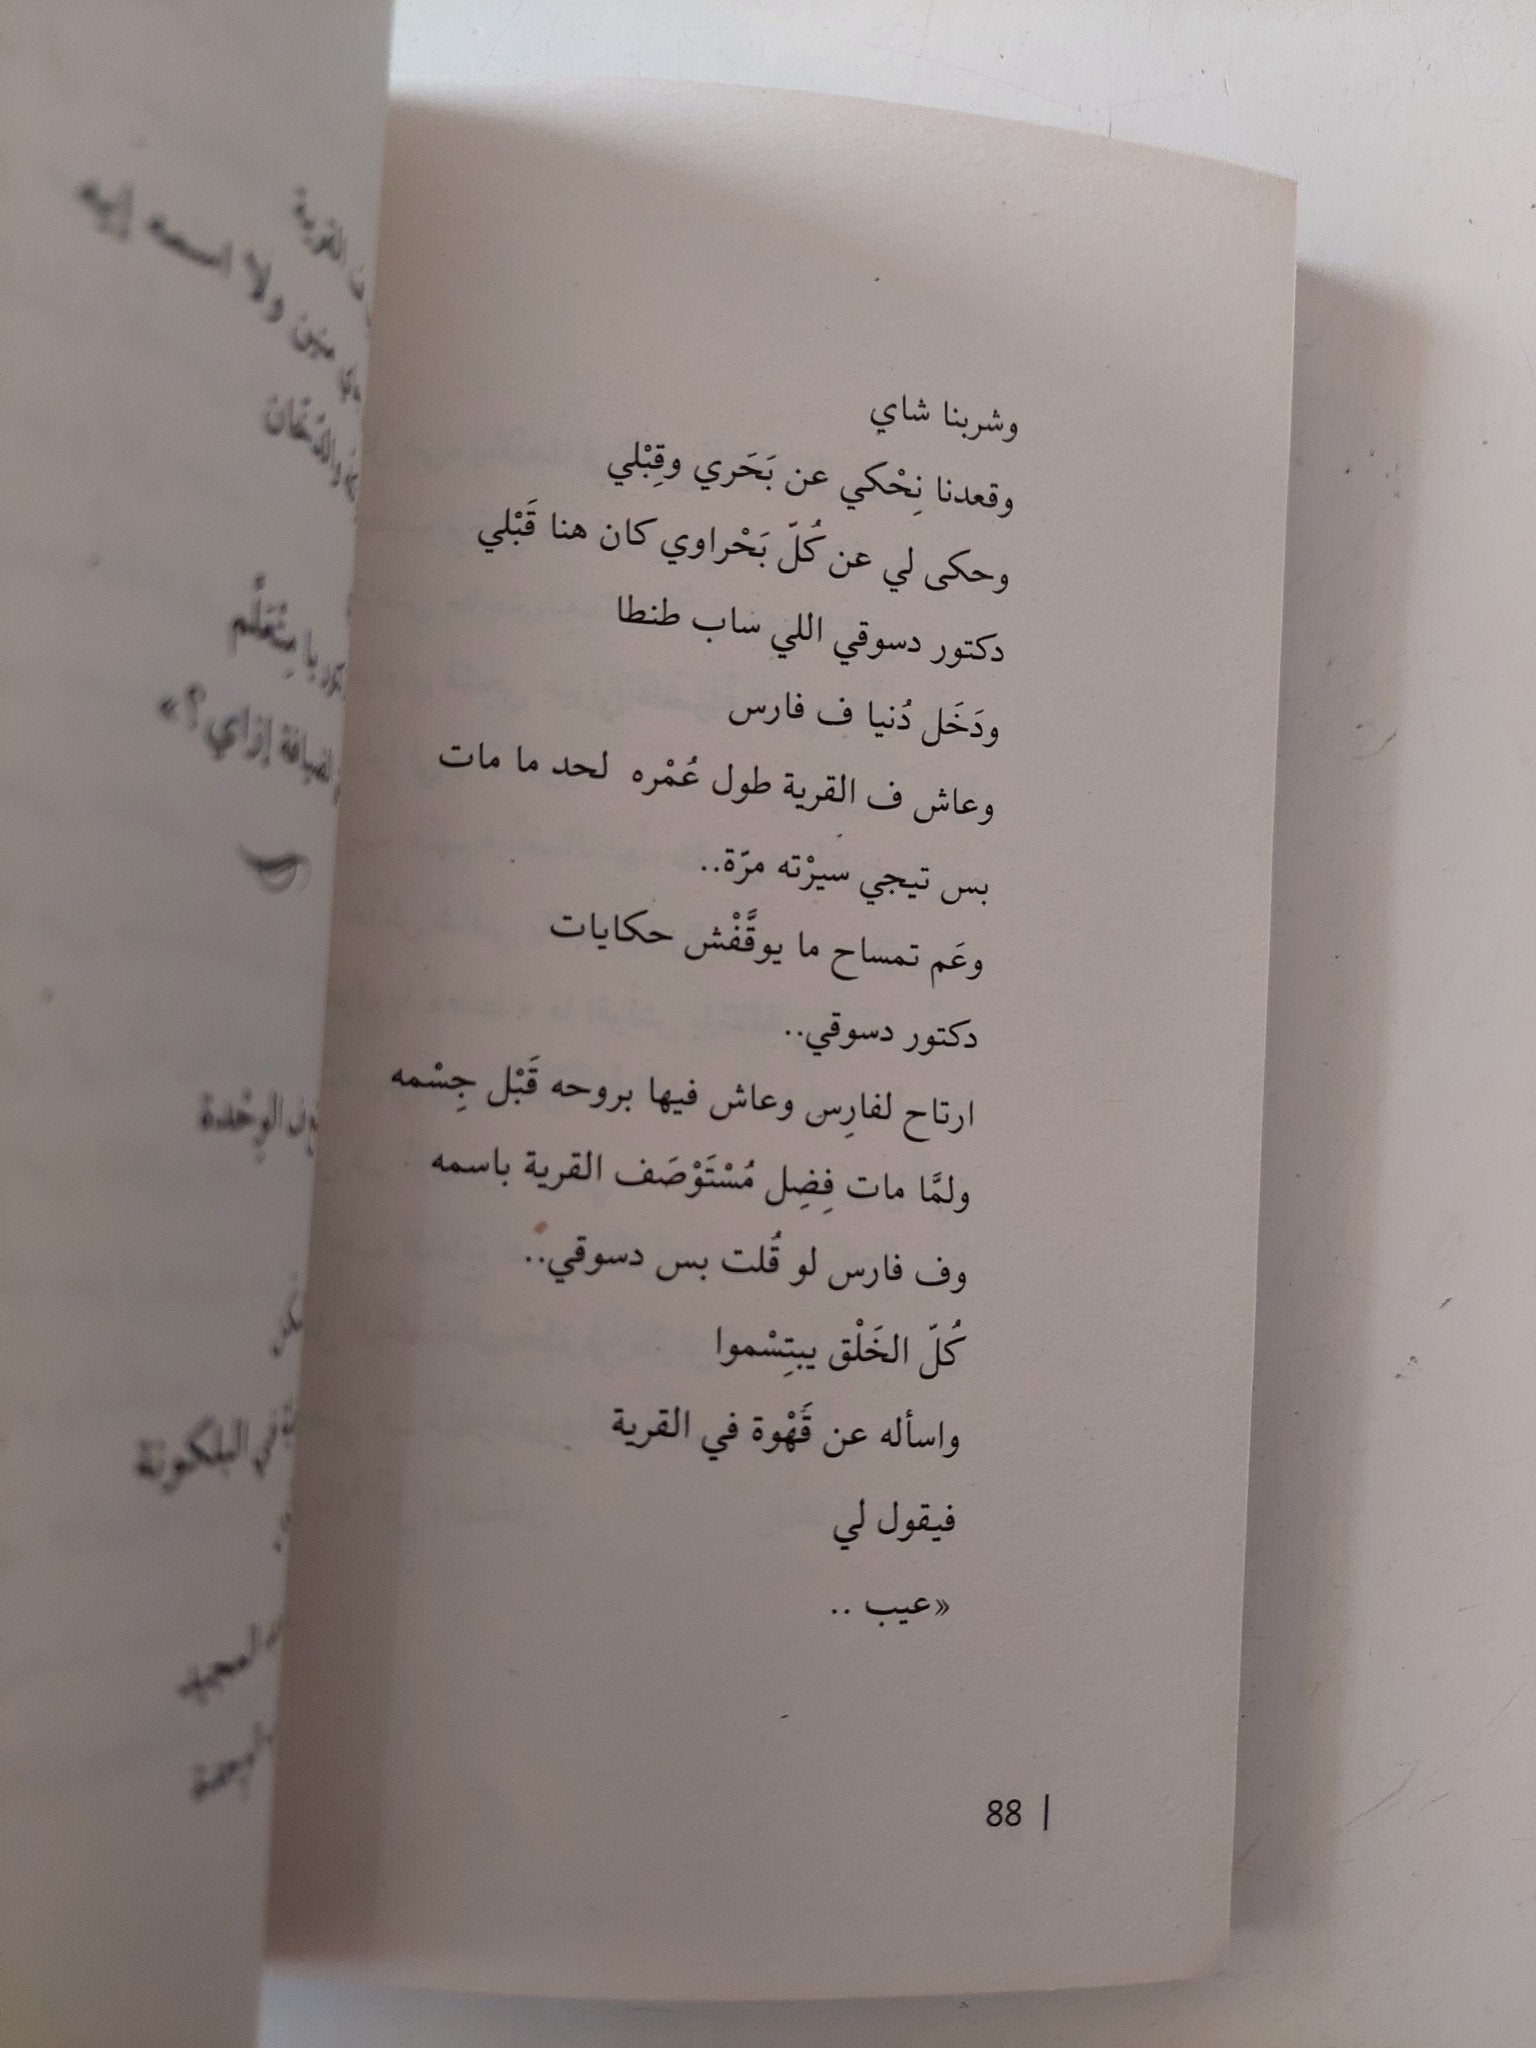 وشربنا شاي
وقعدنا نِحْكي عن بَحَري وقِبْلي
وحكى لي عن كُلّ بَحْراوي كان هنا قَبْلي
دكتور دسوقي اللي ساب طنطا
ودَخَل دُنيا ف فارس
وعاش ف القرية طول عُمْره لحد ما مات
بس تيجي سيرْته مرّة..
وعَم تمساح ما يوقَّفْش حكايات
دكتور دسوقي..
ارتاح لفارِس وعاش فيها بروحه قَبْل جِسْمه
ولمَّا مات فِضِل مُسْتَوْصَف القرية باسمه
وف فارس لو قُلت بس دسوقي..
كُلّ الخَلْق يبتِسْموا
واسأله عن قَهْوة في القرية
فيقول لي
«عيب ..
88 |
القرية
مين ولا اسمه إيه
والدُخان
يا مِتْعَلّم
الضيافة إزاي؟»
ف الوِحْدة
البلكونة